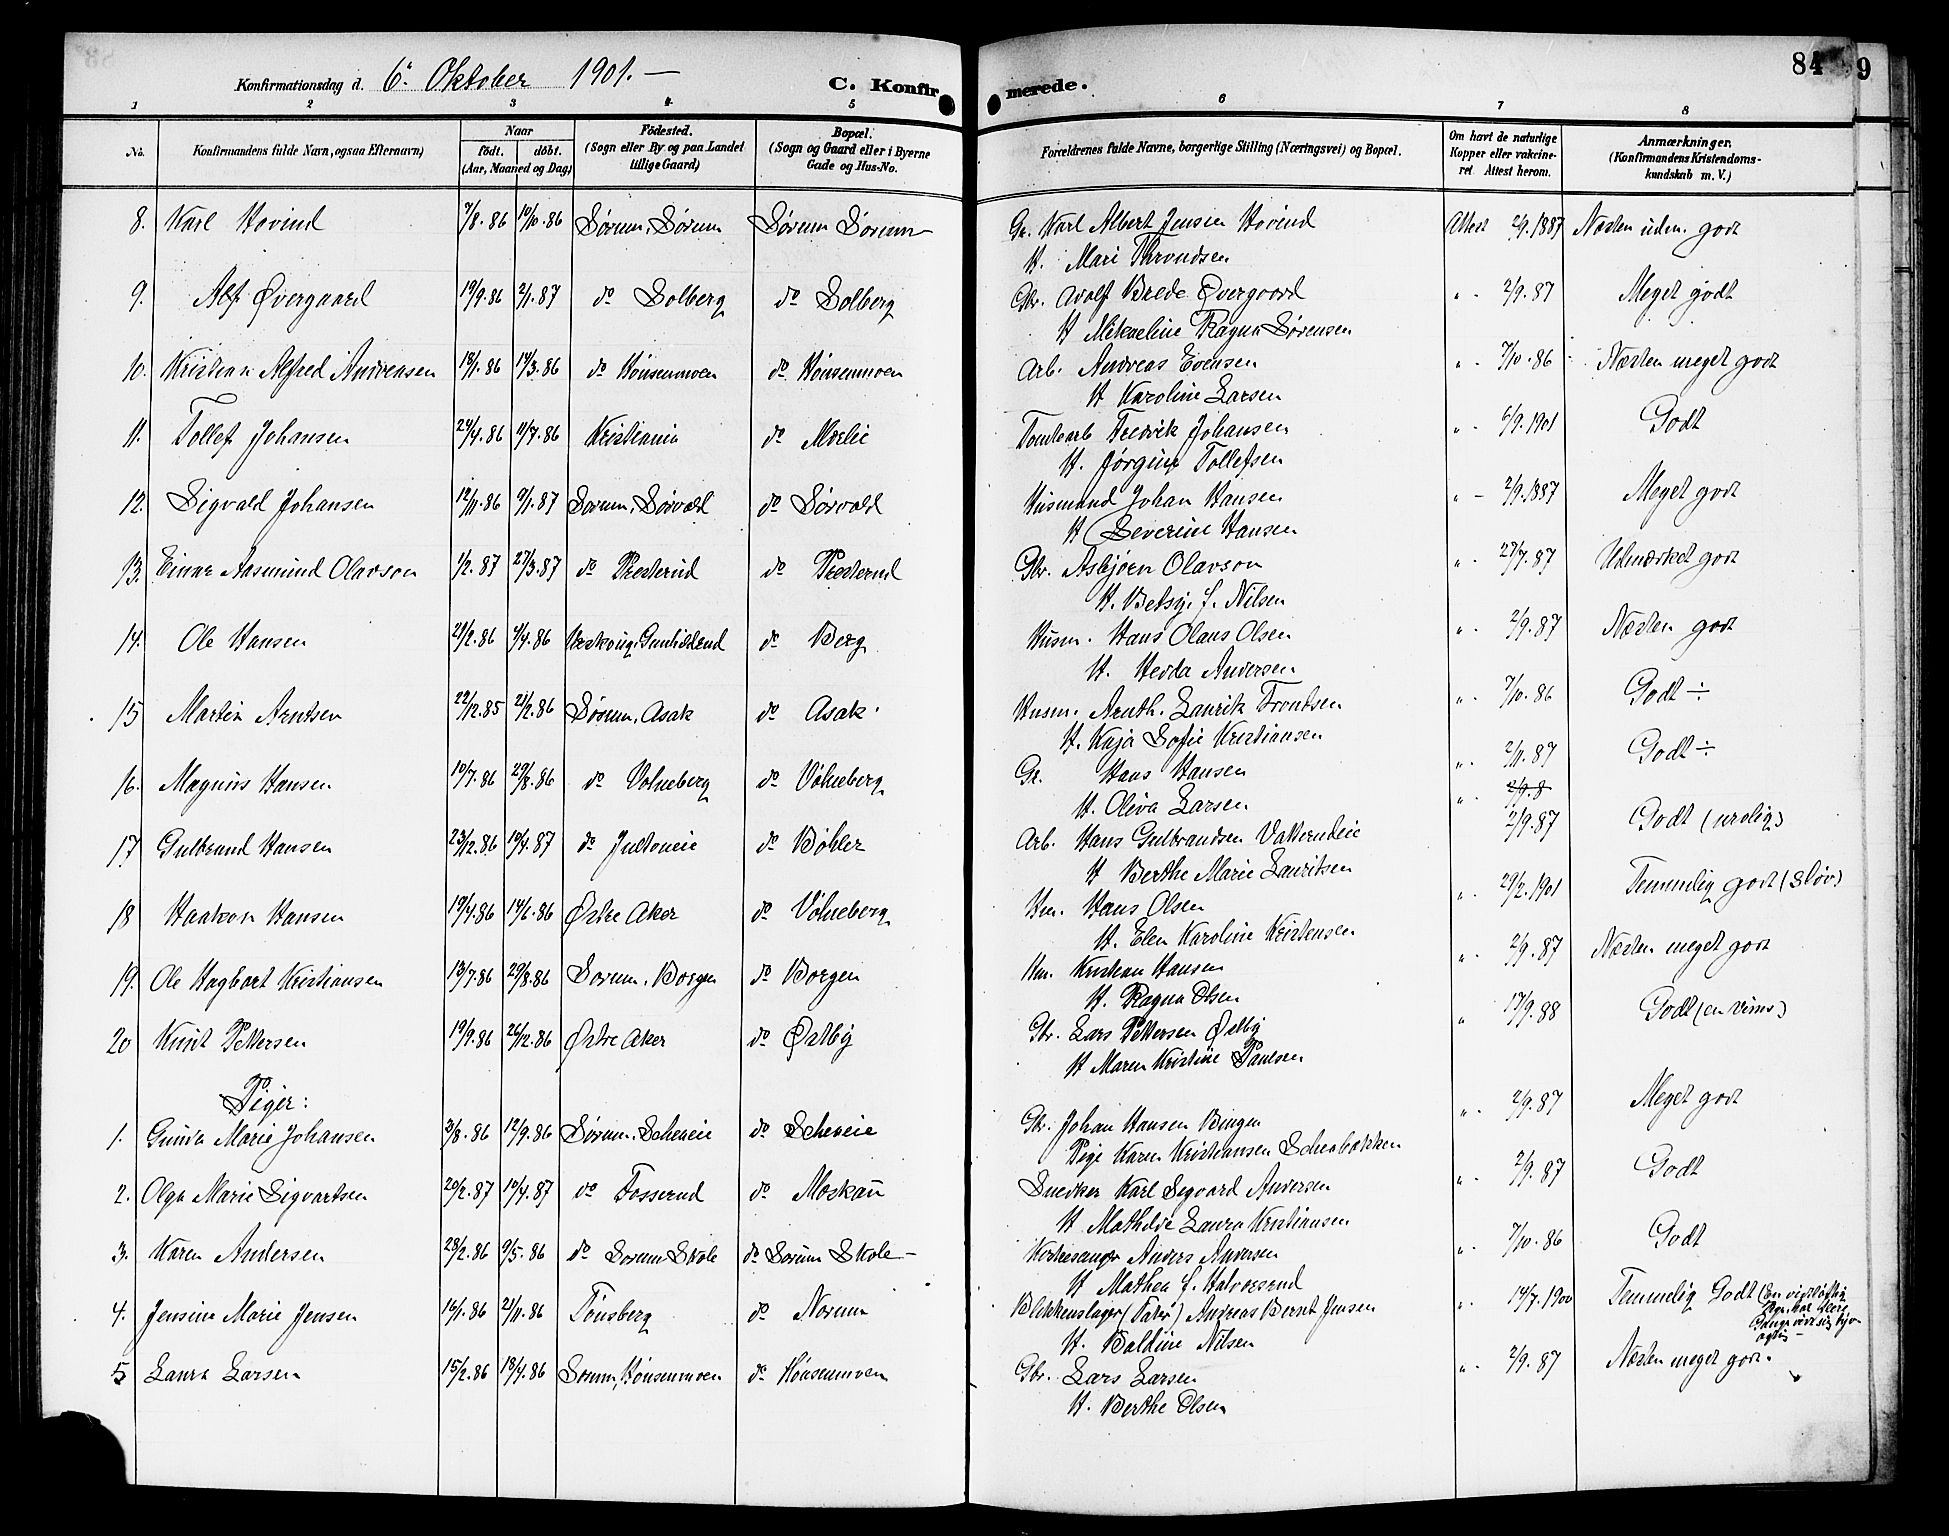 Konfirmationsdag d. 6te Oktober 1901. —
C. Konfirmerede.
84
9
1 2 3 4 5 6 7 8
No. Konfirmandens fulde Navn, ogsaa Efternavn) Naar födt. döbt. (Aar, Maaned og Dag) Födested. (Sogn eller By og paa Landet tillige Gaard) Bopæl. (Sogn og Gaard eller i Byerne Gade og Hus-No. Forældrenes fulde Navne, borgerlige Stilling (Næringsvei) og Bopæl. Om havt de naturlige Kopper eller vakcineret Attest herom. Anmærkninger. (Konfirmandens Kristendomskundskab m. V.)
8. Karl Hovind 7/8.86 10/10.86 Sørum, Sørum Sørum Sørum Gr. Karl Albert Jensen Hovind Attest 2/9.1887 Næsten udm. godt
H. Mari Throndsen
9. Alf Øvergaard 19/9.86 2/1.87 do Solberg do Solberg Gbr. Adolf Brede Øvergaard " - 2/9.87 Meget godt
H Mikaeline Ragna Sørensen
10. Kristian Alfred Andreasen 18/1.86 14/3.86 do Hønsenmoen do Hønsenmoen Arb. Andreas Evensen " - 7/10.86 Næsten meget godt
H Karoline Larsen
11. Tollef Johansen 24/4.86 11/7.86 Kristiania do Mælie Tomtearb Fredrik Johansen " - 6/9.1901 Godt
H. Jørgine Tollefsen
12. Sigvald Johansen 12/11.86 9/1.87 Sørum, Sørvald do Sørvald Husmand Johan Hansen " - 2/9.1887 Meget godt
H Severine Hansen
13. Einar Aasmund Olavson 1/2.87 27/3.87 do Presterud do Presterud Gbr. Asbjørn Olavson " - 27/7.87 Udmærket godt
H. Betsy f. Nilsen
14. Ole Hansen 21/2.86 4/4.86 do Berg Husm. Hans Olaus Olsen " - 2/9.87 Næsten godt
H. Hedda Andersen
15 Martin Arntsen 22/12.85 21/2.86 Sørum, Asak do Asak Husm. Arnth. Laurik Trondsen " - 7/10.86 Godt ÷
H. Kaja Sofie Kristiansen
16. Magnus Hansen 10/7.86 29/8.86 do Vølneberg do Vølneberg Gr. Hans Hansen " - 2/11.87 Godt ÷
H. Oliva Larsen " - 2/9.8
17 Gulbrand Hansen 23/12.86 10/4.87 do Jultoneie do Bøhler Arb. Hans Gulbrandsen Vakterudeie 2/9.87 Godt (urolig)
H Berthe Marie Lauritsen
18 Haakon Hansen 19/4.86 14/6.86 Østre Aker do Vølneberg Hm. Hans Olsen " - 29/2.1901 Temmelig godt (sløv)
H. Elen Karoline Kristensen
19. Ole Hagbart Kristiansen 13/7.86 29/8.86 Sørum, Borgen do Borgen Hm. Kristian Hansen " - 2/9.87 Næsten meget godt
H. Ragna Olsen
20 Knut Pettersen 19/9.86 26/12.86 Østre Aker do Østby Gbr. Lars Pettersen Østby " 17/9.88 Godt (en vims)
H Maren Kristine Paulsen
Piger:
1. Gunda Marie Johansen 3/8.86 12/9.86 Sørum, Scheneie do Scheneie Gbr. Johan Hansen Bingen " - 2/9.87 Meget godt
Pige Karen Kristiansen Schenbakken
2. Olga Marie Sigvartsen 20/2.87 10/4.87 do Fosserud do Moskau Snedker Karl Sigvard Andersen " - 2/9.87 Godt
H Mathilde Laura Kristiansen
3. Karen Andersen 28/2.86 9/5.86 do Sørum Skole do Sørum Skole — Kirkesanger Anders Andersen " - 7/10.86 Godt
H Mathea f. Halvorsrud
4. Jensine Marie Jensen 16/1.86 21/11.86 Tønsberg do Norum Blikkenslager (Fatø) Andreas Bernt Jensen " - 14/7.1900 Temmelig Godt (En
H. Baldine Nilsen
5 Laura Larsen 15/2.86 18/4.86 Sørum, Hønsenmoen do Hønsenmoen Gbr. Lars Larsen " - 2/9.87 Næsten meget godt.
H. Berthe Olsen